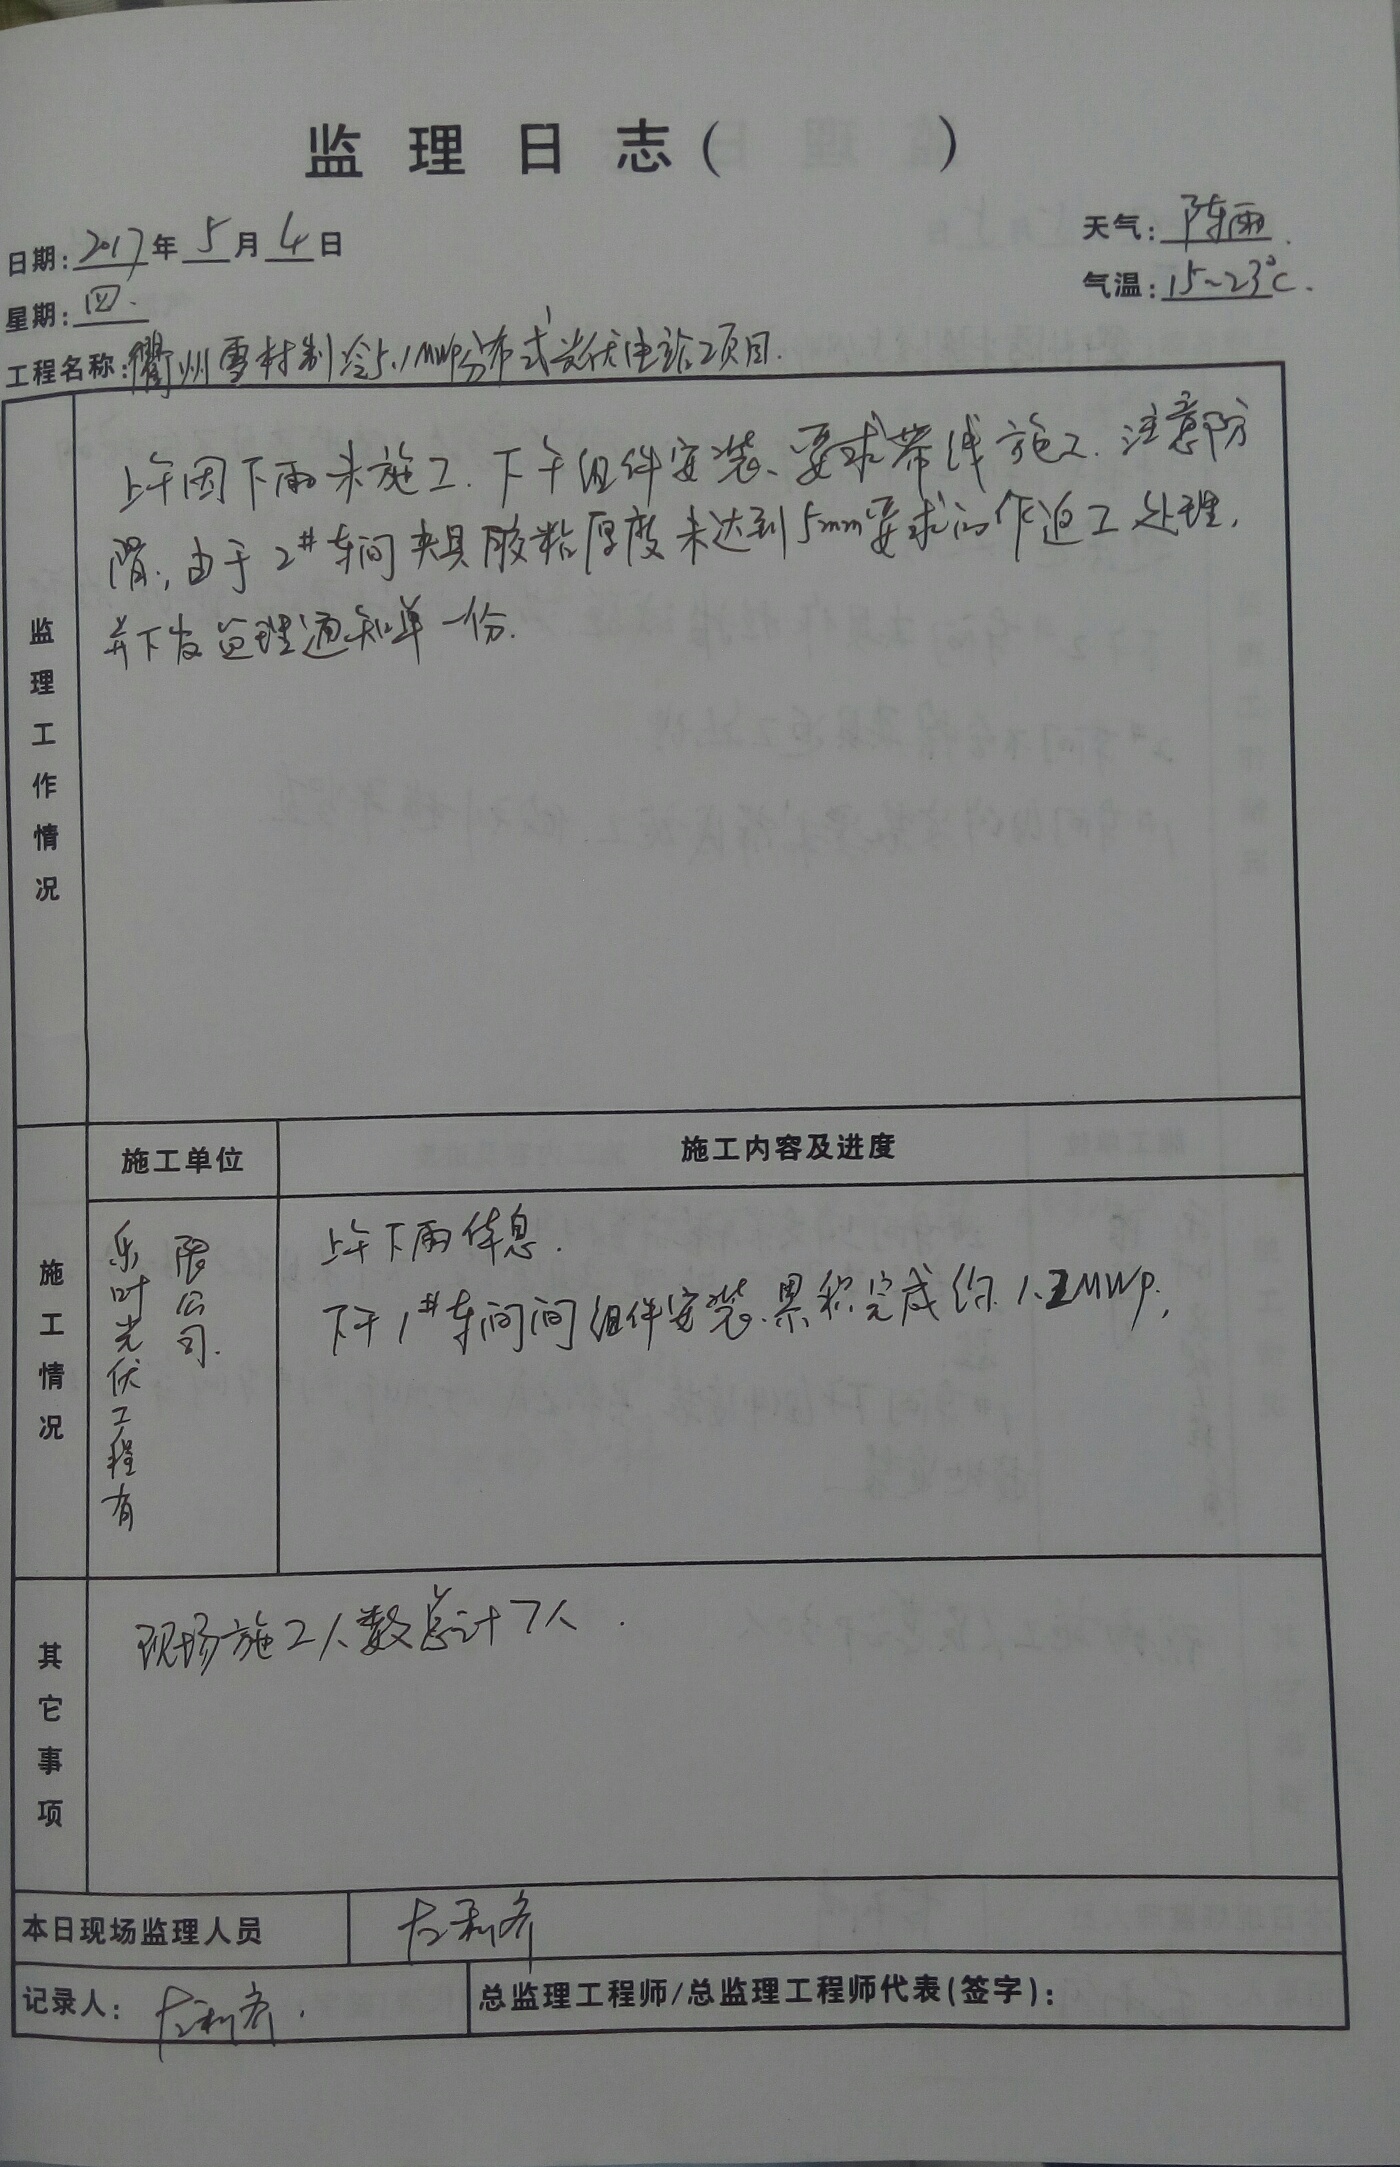 监理日志（ ）
日期:2017年5月4日
天气:阵雨.
星期:四.
气温:15~23℃.
工程名称:衢州雪村制冷5.1MWP分布式光伏电站项目.
监理工作情况
上午因下雨未施工.下午组件安装、要求带线施工.注意防
隔.,由于2#车间夹具胶粘厚度未达到5mm要求的作返工处理,
并下发监理通知单一份.
施工单位
施工内容及进度
施工情况
乐叶光伏工程有
限公司.
上午下雨休息.
下午1#车间间组件安装.累积完成约1.2MWP,
其它事项
现场施工人数总计7人.
本日现场监理人员
记录人:
总监理工程师/总监理工程师代表(签字):